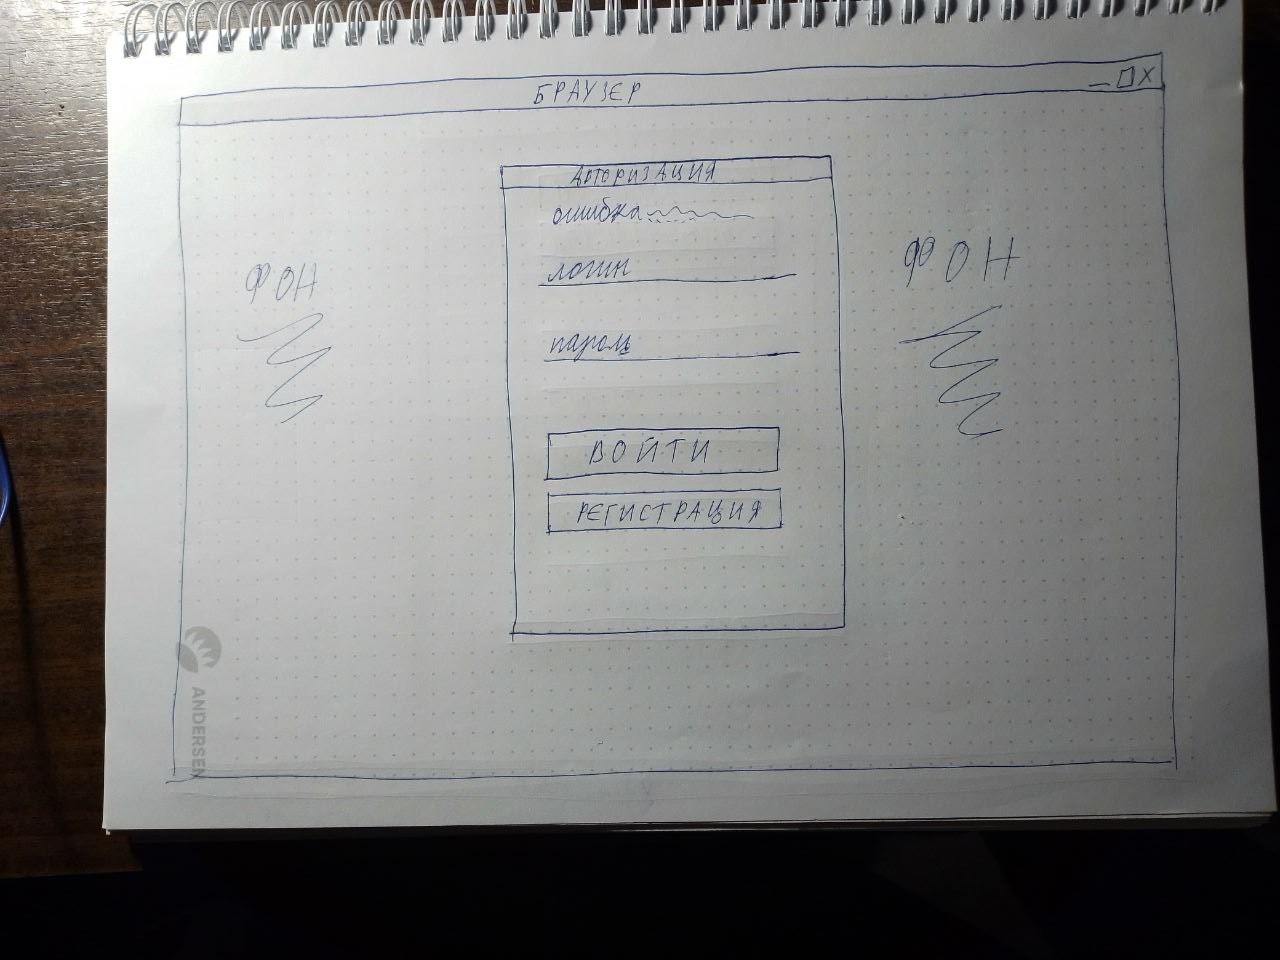 БРАУЗЕР
АВТОРИЗАЦИЯ
ошибка
ФОН
логин
ФОН
пароль
ВОЙТИ
РЕГИСТРАЦИЯ
ANDERSEN